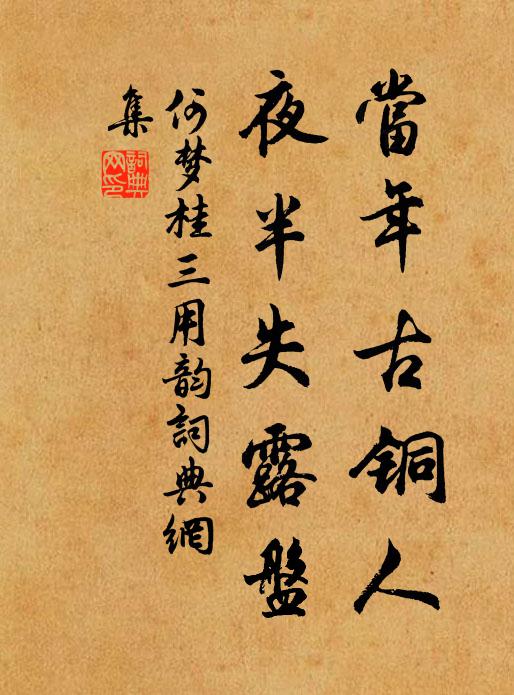 當年古銅人
夜半失露盤
何梦桂三用韵詞典網
集
詞典网印